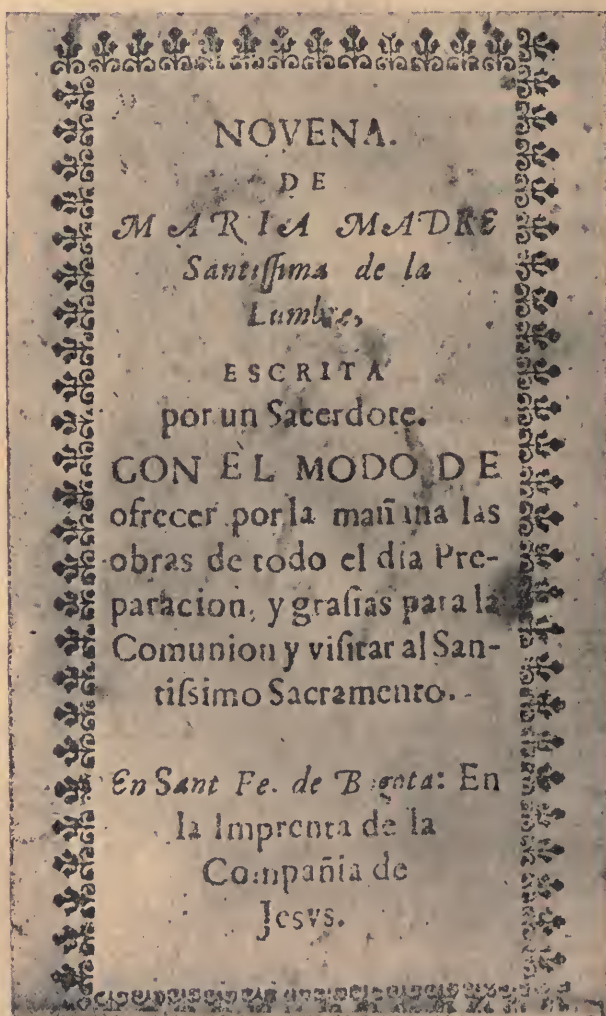 NOVENA.
DE
MARIA MADRE
Santiſſima de la
Lumbre,
ESCRITA
por un Sacerdote.
CON EL MODO DE
ofrecer por la mañana las
obras de todo el dia Pre-
paracion, y graſias para la
Comunion y viſitar al San-
tiſsimo Sacramento.
En Sant Fe. de Bogota: En
la Imprenta de la
Compañia de
Jesvs.